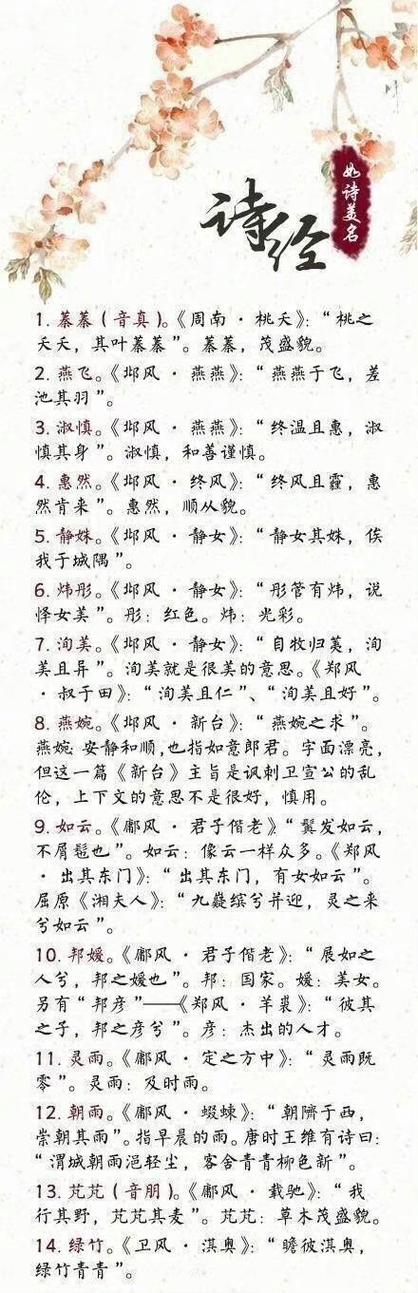 如诗美名
诗经
1. 蓁蓁（音真）。《周南 · 桃夭》：“桃之
夭夭，其叶蓁蓁”。蓁蓁，茂盛貌。
2. 燕飞。《邶风 · 燕燕》：“燕燕于飞，差
池其羽”。
3. 淑慎。《邶风 · 燕燕》：“终温且惠，淑
慎其身”。淑慎，和善谨慎。
4. 惠然。《邶风 · 终风》：“终风且霾，惠
然肯来”。惠然，顺从貌。
5. 静姝。《邶风 · 静女》：“静女其姝，俟
我于城隅”。
6. 炜彤。《邶风 · 静女》：“彤管有炜，说
怿女美”。彤：红色。炜：光彩。
7. 洵美。《邶风 · 静女》：“自牧归荑，洵
美且异”。洵美就是很美的意思。《郑风
· 叔于田》：“洵美且仁”、“洵美且好”。
8. 燕婉。《邶风 · 新台》：“燕婉之求”。
燕婉：安静和顺，也指如意郎君。字面漂亮，
但这一篇《新台》主旨是讽刺卫宣公的乱
伦，上下文的意思不是很好，慎用。
9. 如云。《鄘风 · 君子偕老》“鬒发如云，
不屑髢也”。如云：像云一样众多。《郑风
· 出其东门》：“出其东门，有女如云”。
屈原《湘夫人》：“九嶷缤兮并迎，灵之来
兮如云”。
10. 邦媛。《鄘风 · 君子偕老》：“展如之
人兮，邦之媛也”。邦：国家。媛：美女。
另有“邦彦”——《郑风 · 羊裘》：“彼其
之子，邦之彦兮”。彦：杰出的人才。
11. 灵雨。《鄘风 · 定之方中》：“灵雨既
零”。灵雨：及时雨。
12. 朝雨。《鄘风 · 蝃蝀》：“朝隮于西，
崇朝其雨”。指早晨的雨。唐时王维有诗曰：
“渭城朝雨浥轻尘，客舍青青柳色新”。
13. 芃芃（音朋）。《鄘风 · 载驰》：“我
行其野，芃芃其麦”。芃芃：草木茂盛貌。
14. 绿竹。《卫风 · 淇奥》：“瞻彼淇奥，
绿竹青青”。